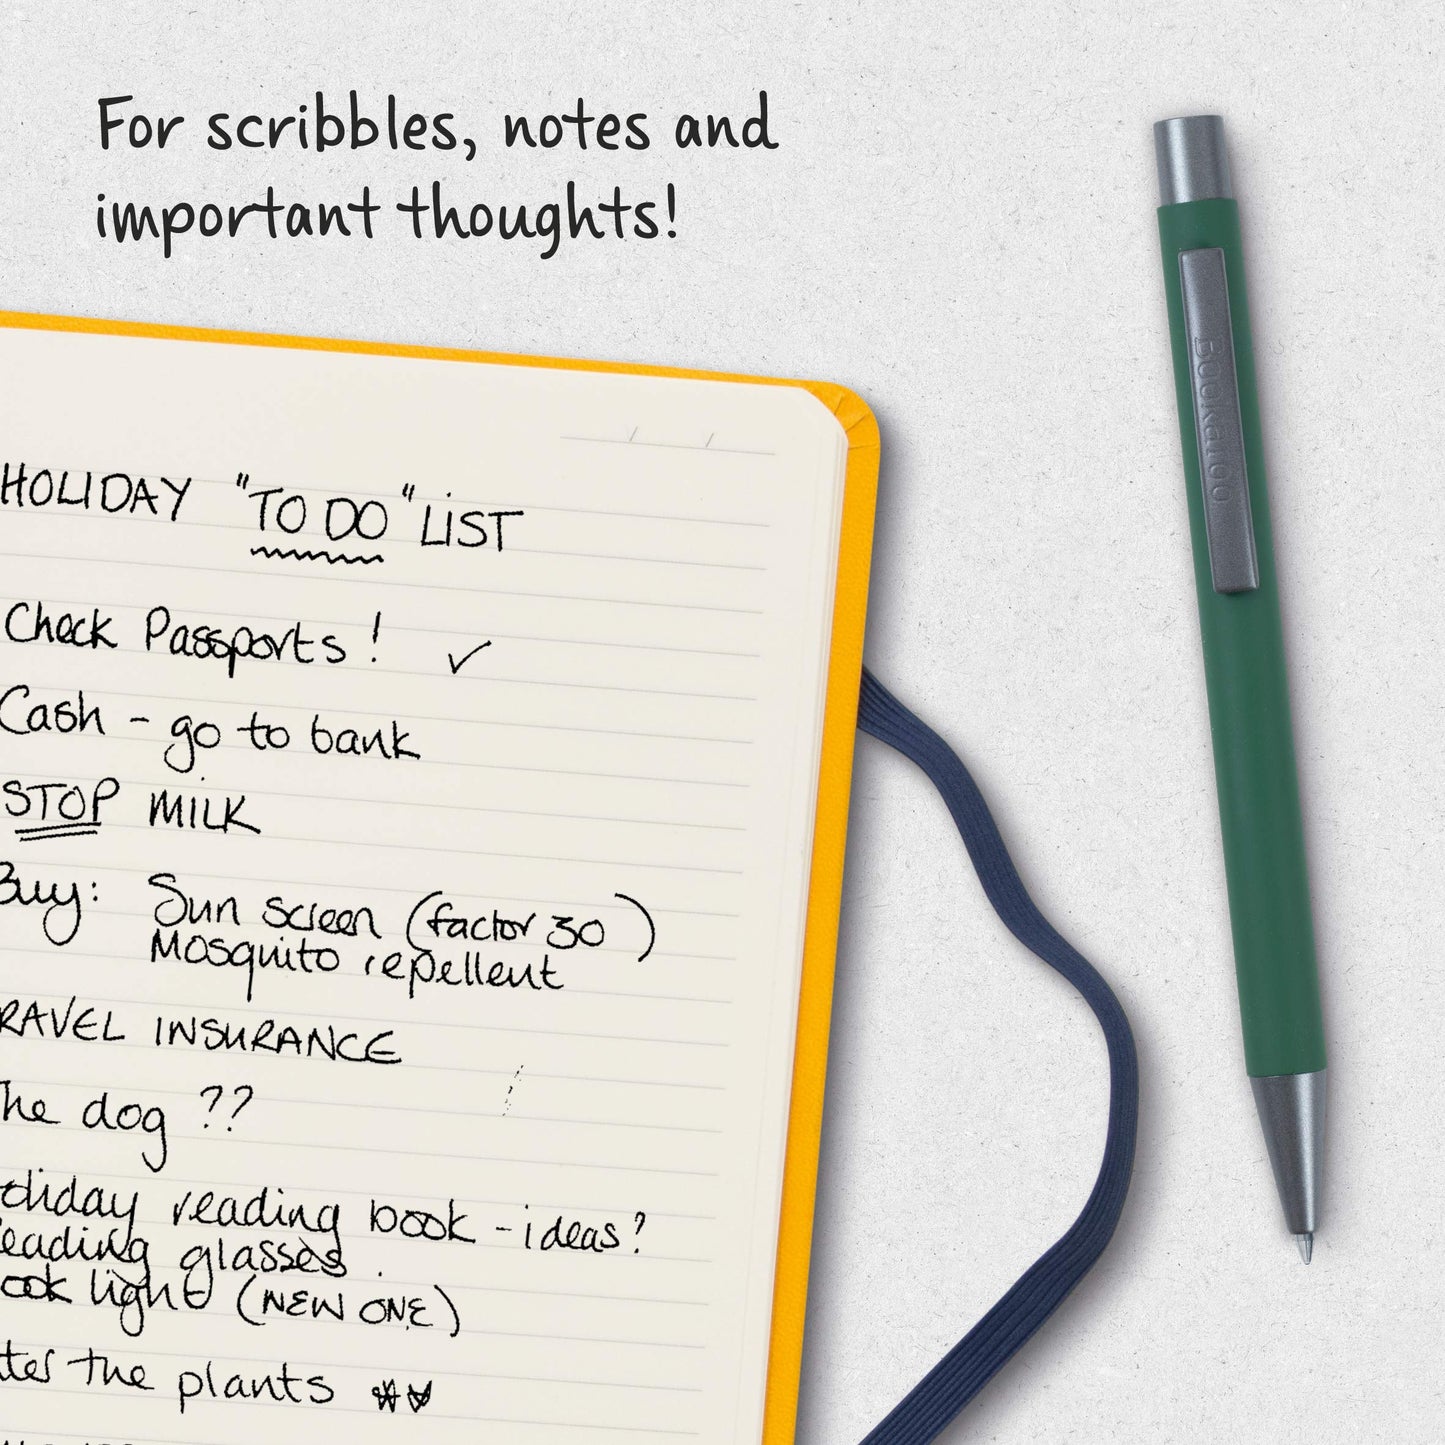 For scribbles, notes and
important thoughts!
Bookaroo
HOLIDAY "TO DO" LIST
Check Passports! ✓
Cash - go to bank
STOP MILK
Buy: Sun screen (factor 30)
Mosquito repellent
RAVEL INSURANCE
he dog ??
oliday reading book - ideas?
eading glasses
ook light (NEW ONE)
ter the plants